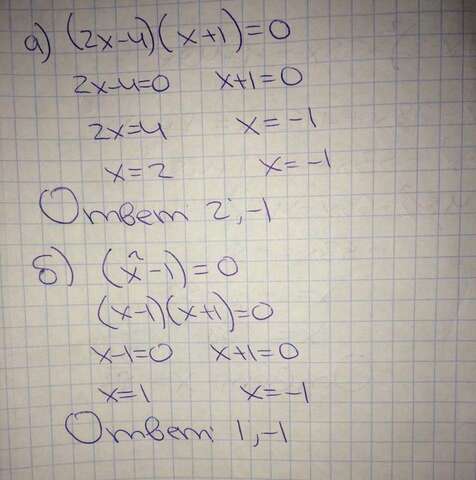 а) (2x-4)(x+1)=0
2x-4=0 x+1=0
2x=4 x=-1
x=2 x=-1
Ответ: 2; -1
б) (x²-1)=0
(x-1)(x+1)=0
x-1=0 x+1=0
x=1 x=-1
Ответ: 1, -1